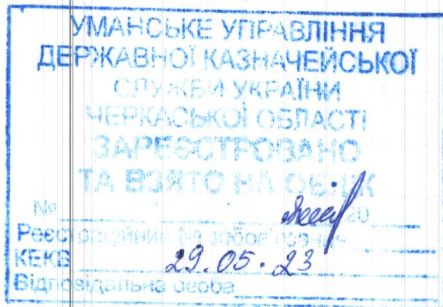 УМАНСЬКЕ УПРАВЛІННЯ
ДЕРЖАВНОЇ КАЗНАЧЕЙСЬКОЇ
СЛУЖБИ УКРАЇНИ
ЧЕРКАСЬКОЇ ОБЛАСТІ
ЗАРЕЄСТРОВАНО
ТА ВЗЯТО НА ОБЛІК
№ 20
Реєстраційний № зобов'язання
КЕКВ 29.05.23
Відповідальна особа